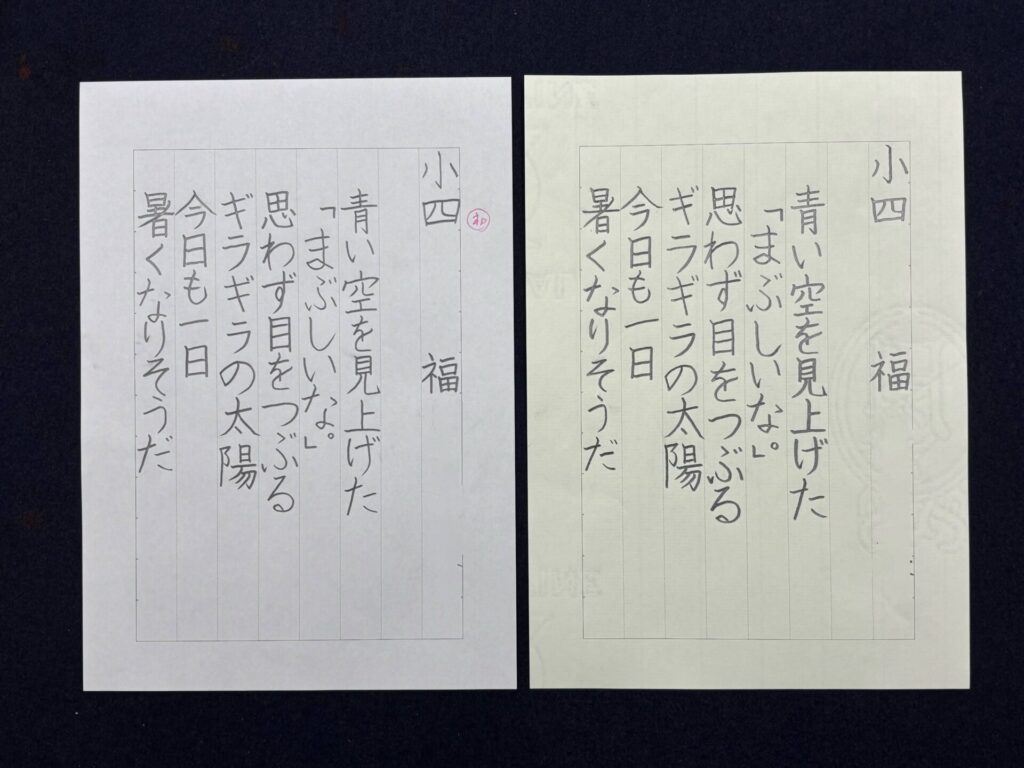 小四 福
青い空を見上げた
「まぶしいな。」
思わず目をつぶる
ギラギラの太陽
今日も一日
暑くなりそうだ
小四 福
青い空を見上げた
「まぶしいな。」
思わず目をつぶる
ギラギラの太陽
今日も一日
暑くなりそうだ